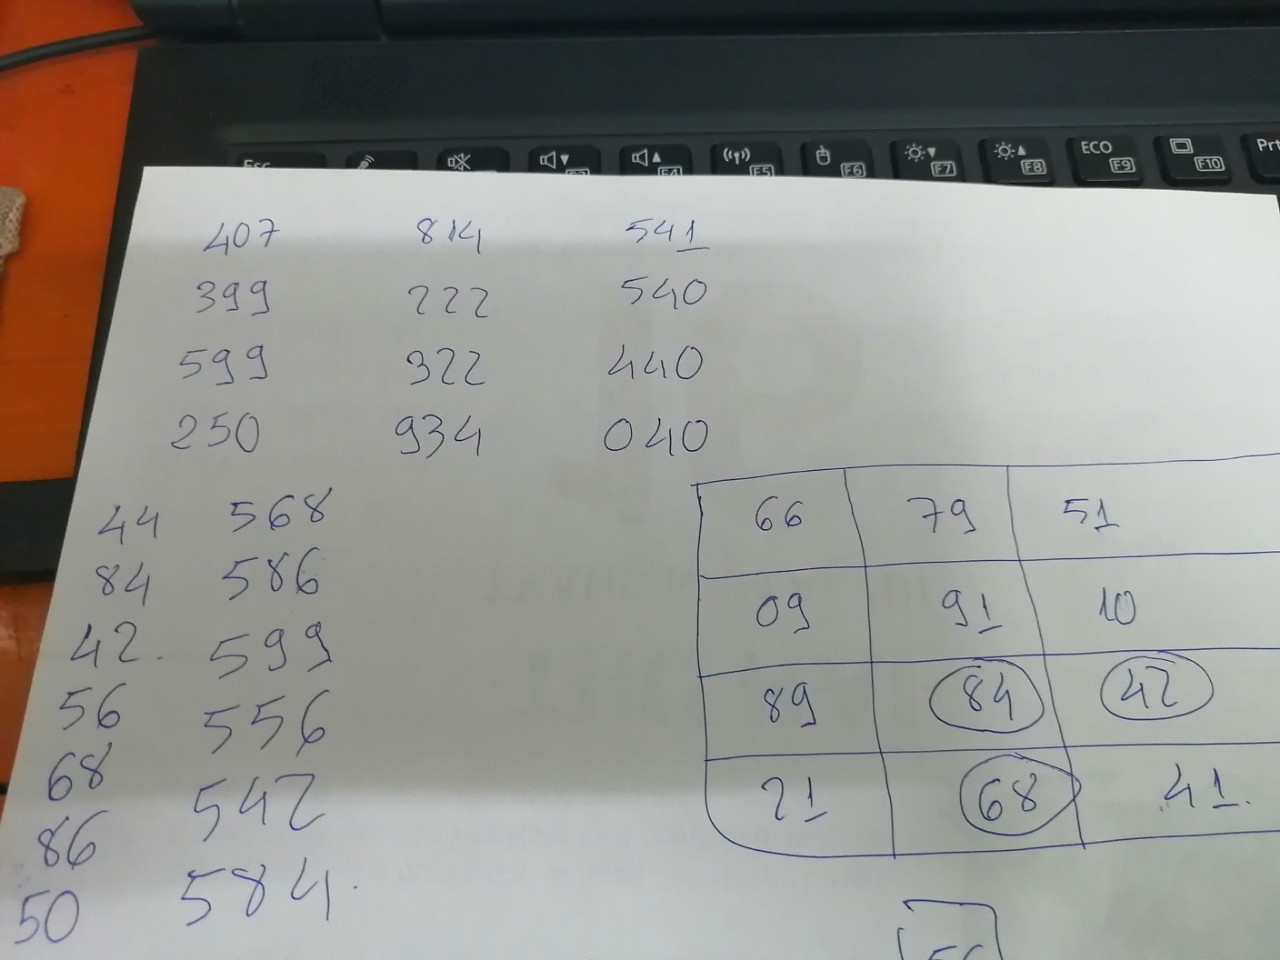 Esc
F5 F6 F7 F8 ECO F9 F10 Prt
407 814 541
399 222 540
599 322 440
250 934 040
44 568
84 586
42. 599
56 556
68 542
86 584.
50
66 79 51
09 91 10
89 84 42
21 68 41.